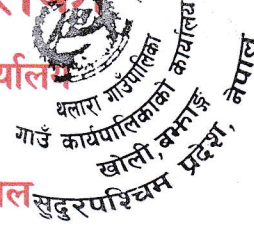 र्यालय
थलारा गाउँपालिका
गाउँ कार्यपालिकाको कार्यालय
खोली, बझाङ्ग
ल
सुदुरपश्चिम प्रदेश, नेपाल